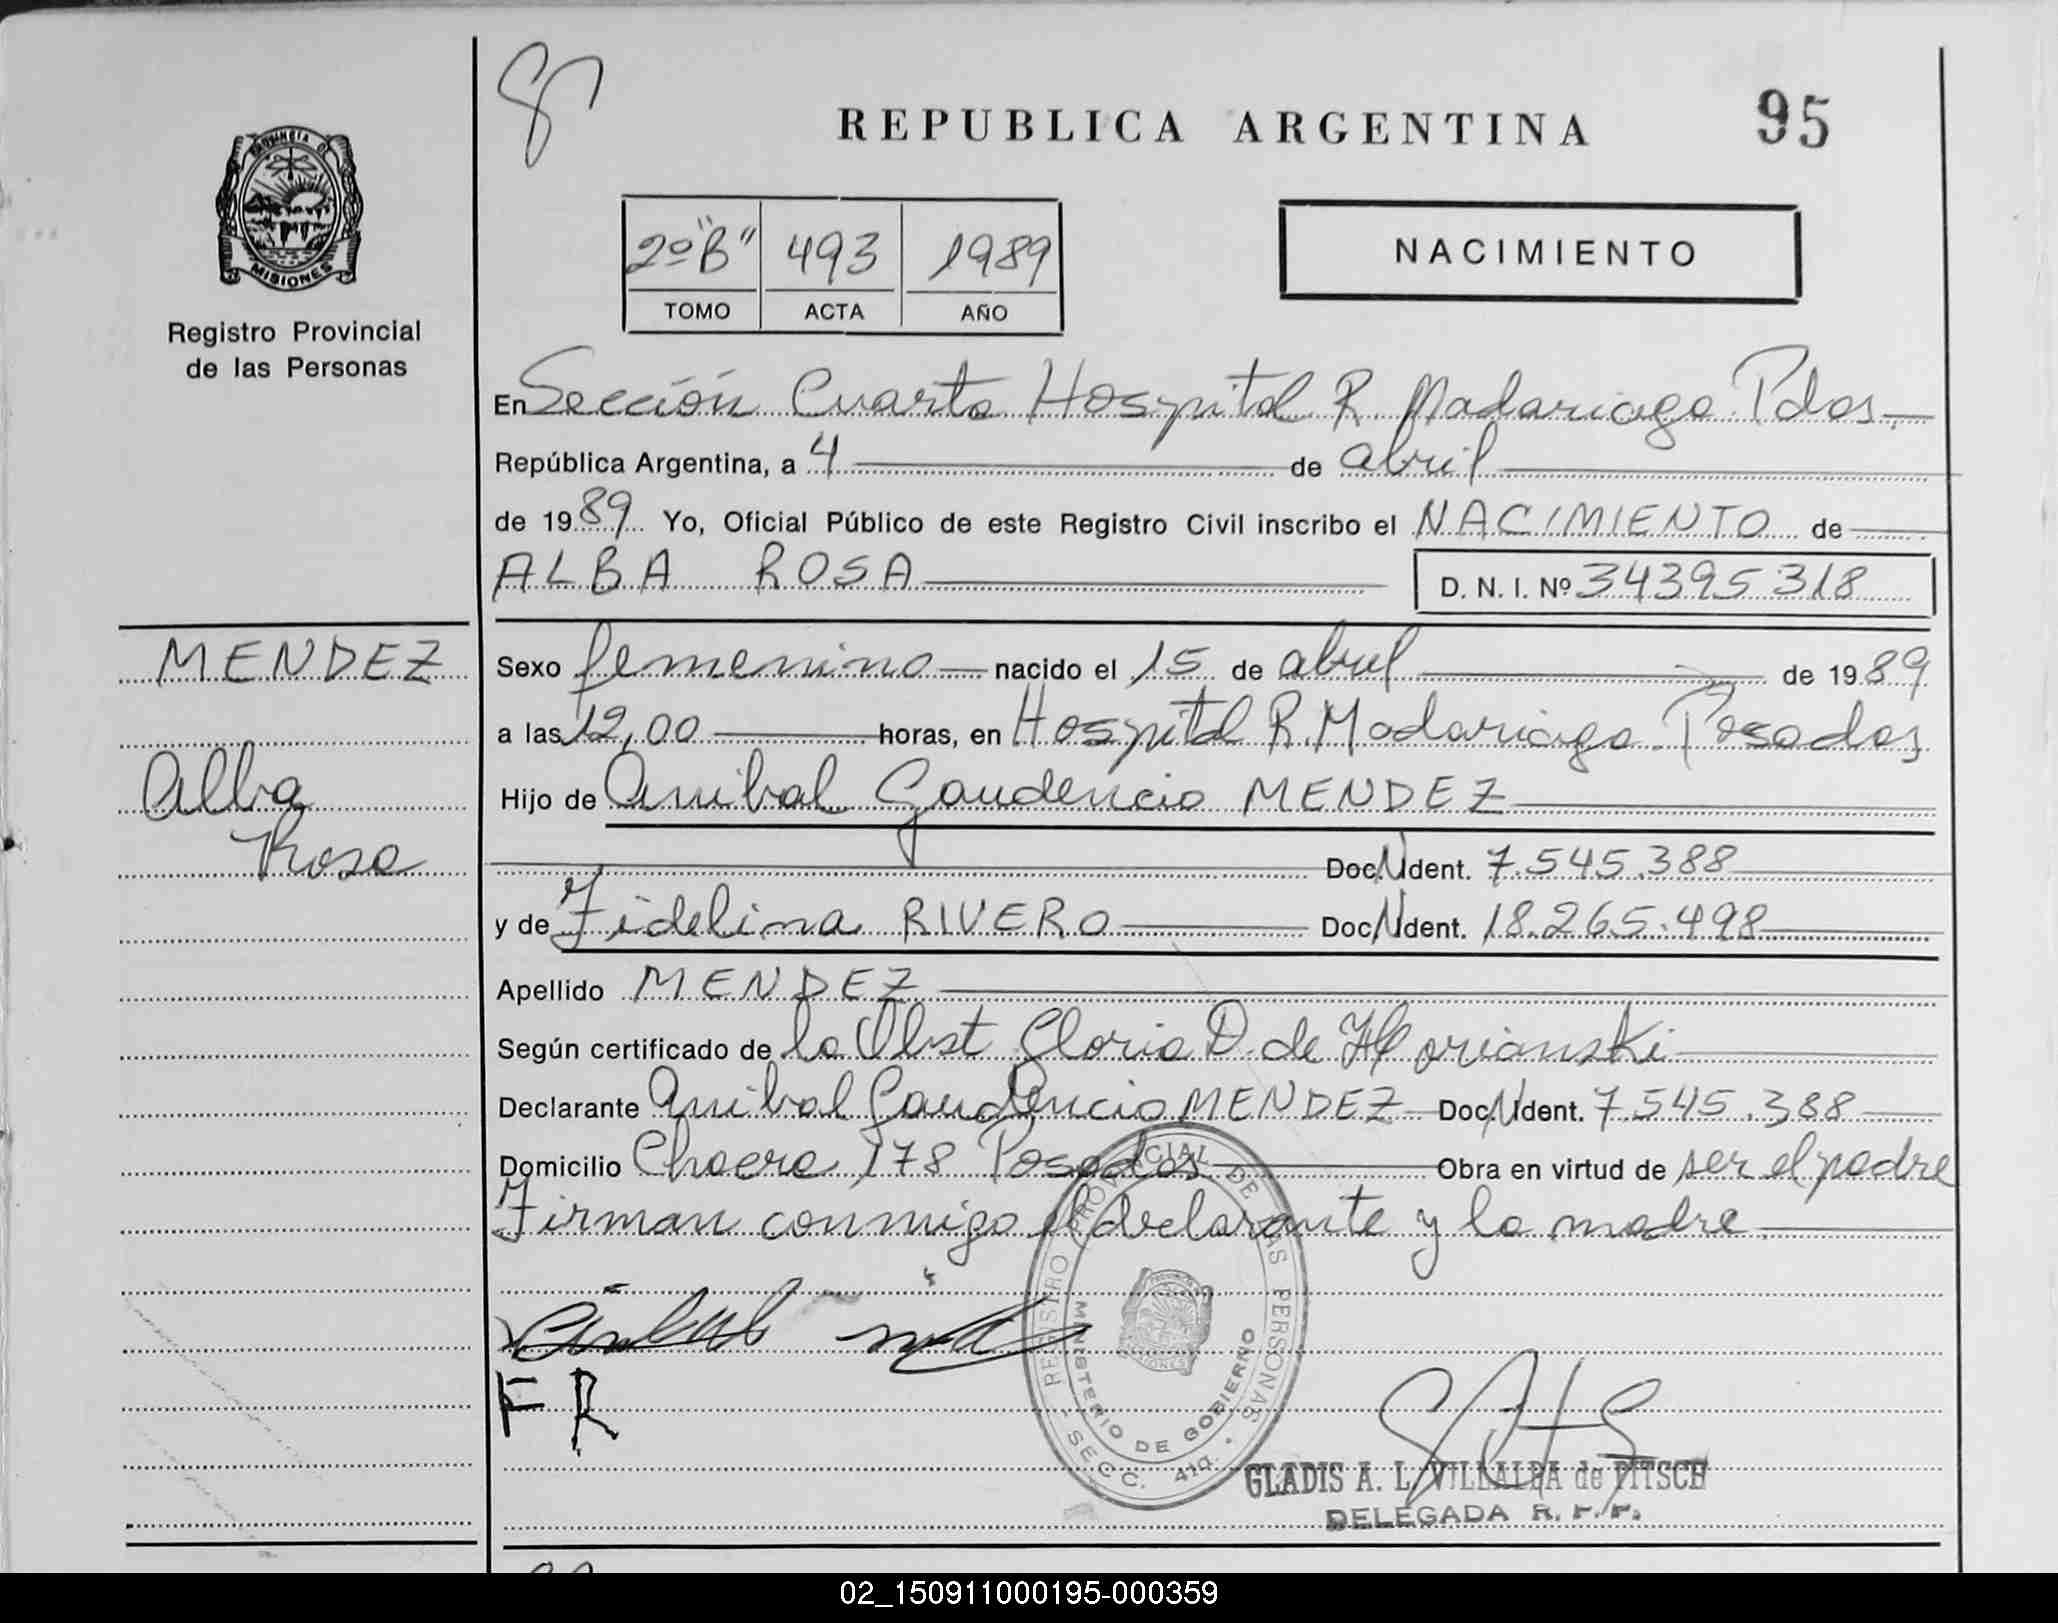 95
REPUBLICA ARGENTINA
PROVINCIA DE
MISIONES
Registro Provincial
de las Personas
2º "B" 493 1989
TOMO ACTA AÑO
NACIMIENTO
En Sección Cuarta Hospital R. Madariaga Pdas.
República Argentina, a 4 de abril
de 1989 Yo, Oficial Público de este Registro Civil inscribo el NACIMIENTO de
ALBA ROSA D. N. I. Nº 34395318
MENDEZ
Alba
Rosa
Sexo femenino nacido el 15 de abril de 1989
a las 12,00 horas, en Hospital R. Madariaga. Posadas
Hijo de Anibal Gaudencio MENDEZ
Doc. Ident. 7.545.388
y de Fidelina RIVERO Doc. Ident. 18.265.498
Apellido MENDEZ
Según certificado de la Obst Gloria D. de
Declarante Anibal Gaudencio MENDEZ Doc. Ident. 7.545.388
Domicilio Chacra 178 Posadas Obra en virtud de ser el padre
Firman conmigo el declarante y la madre
F R
REGISTRO PROVINCIAL DE LAS PERSONAS
MINISTERIO DE GOBIERNO
SECC. 4ta.
GLADIS A. L. VILLALBA de PITSCH
DELEGADA R. P. P.
02_150911000195-000359